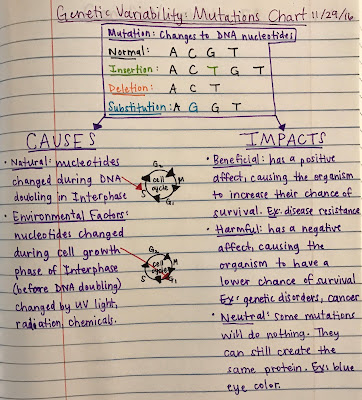 Genetic Variability: Mutations Chart 11/29/16
Mutation: Changes to DNA nucleotides
Normal: A C G T
Insertion: A C T G T
Deletion: A C T
Substitution: A G G T
CAUSES
• Natural: nucleotides
changed during DNA
doubling in Interphase
• Environmental Factors:
nucleotides changed
during cell growth
phase of Interphase
(before DNA doubling)
changed by UV light,
radiation, chemicals.
G₂
M
cell
cycle
S
G₁
G₂
M
cell
cycle
S
G₁
IMPACTS
• Beneficial: has a positive
affect, causing the organism
to increase their chance of
survival. Ex: disease resistance
• Harmful: has a negative
affect, causing the
organism to have a
lower chance of survival
Ex: genetic disorders, cancer
• Neutral: some mutations
will do nothing. They
can still create the
same protein. Ex: blue
eye color.